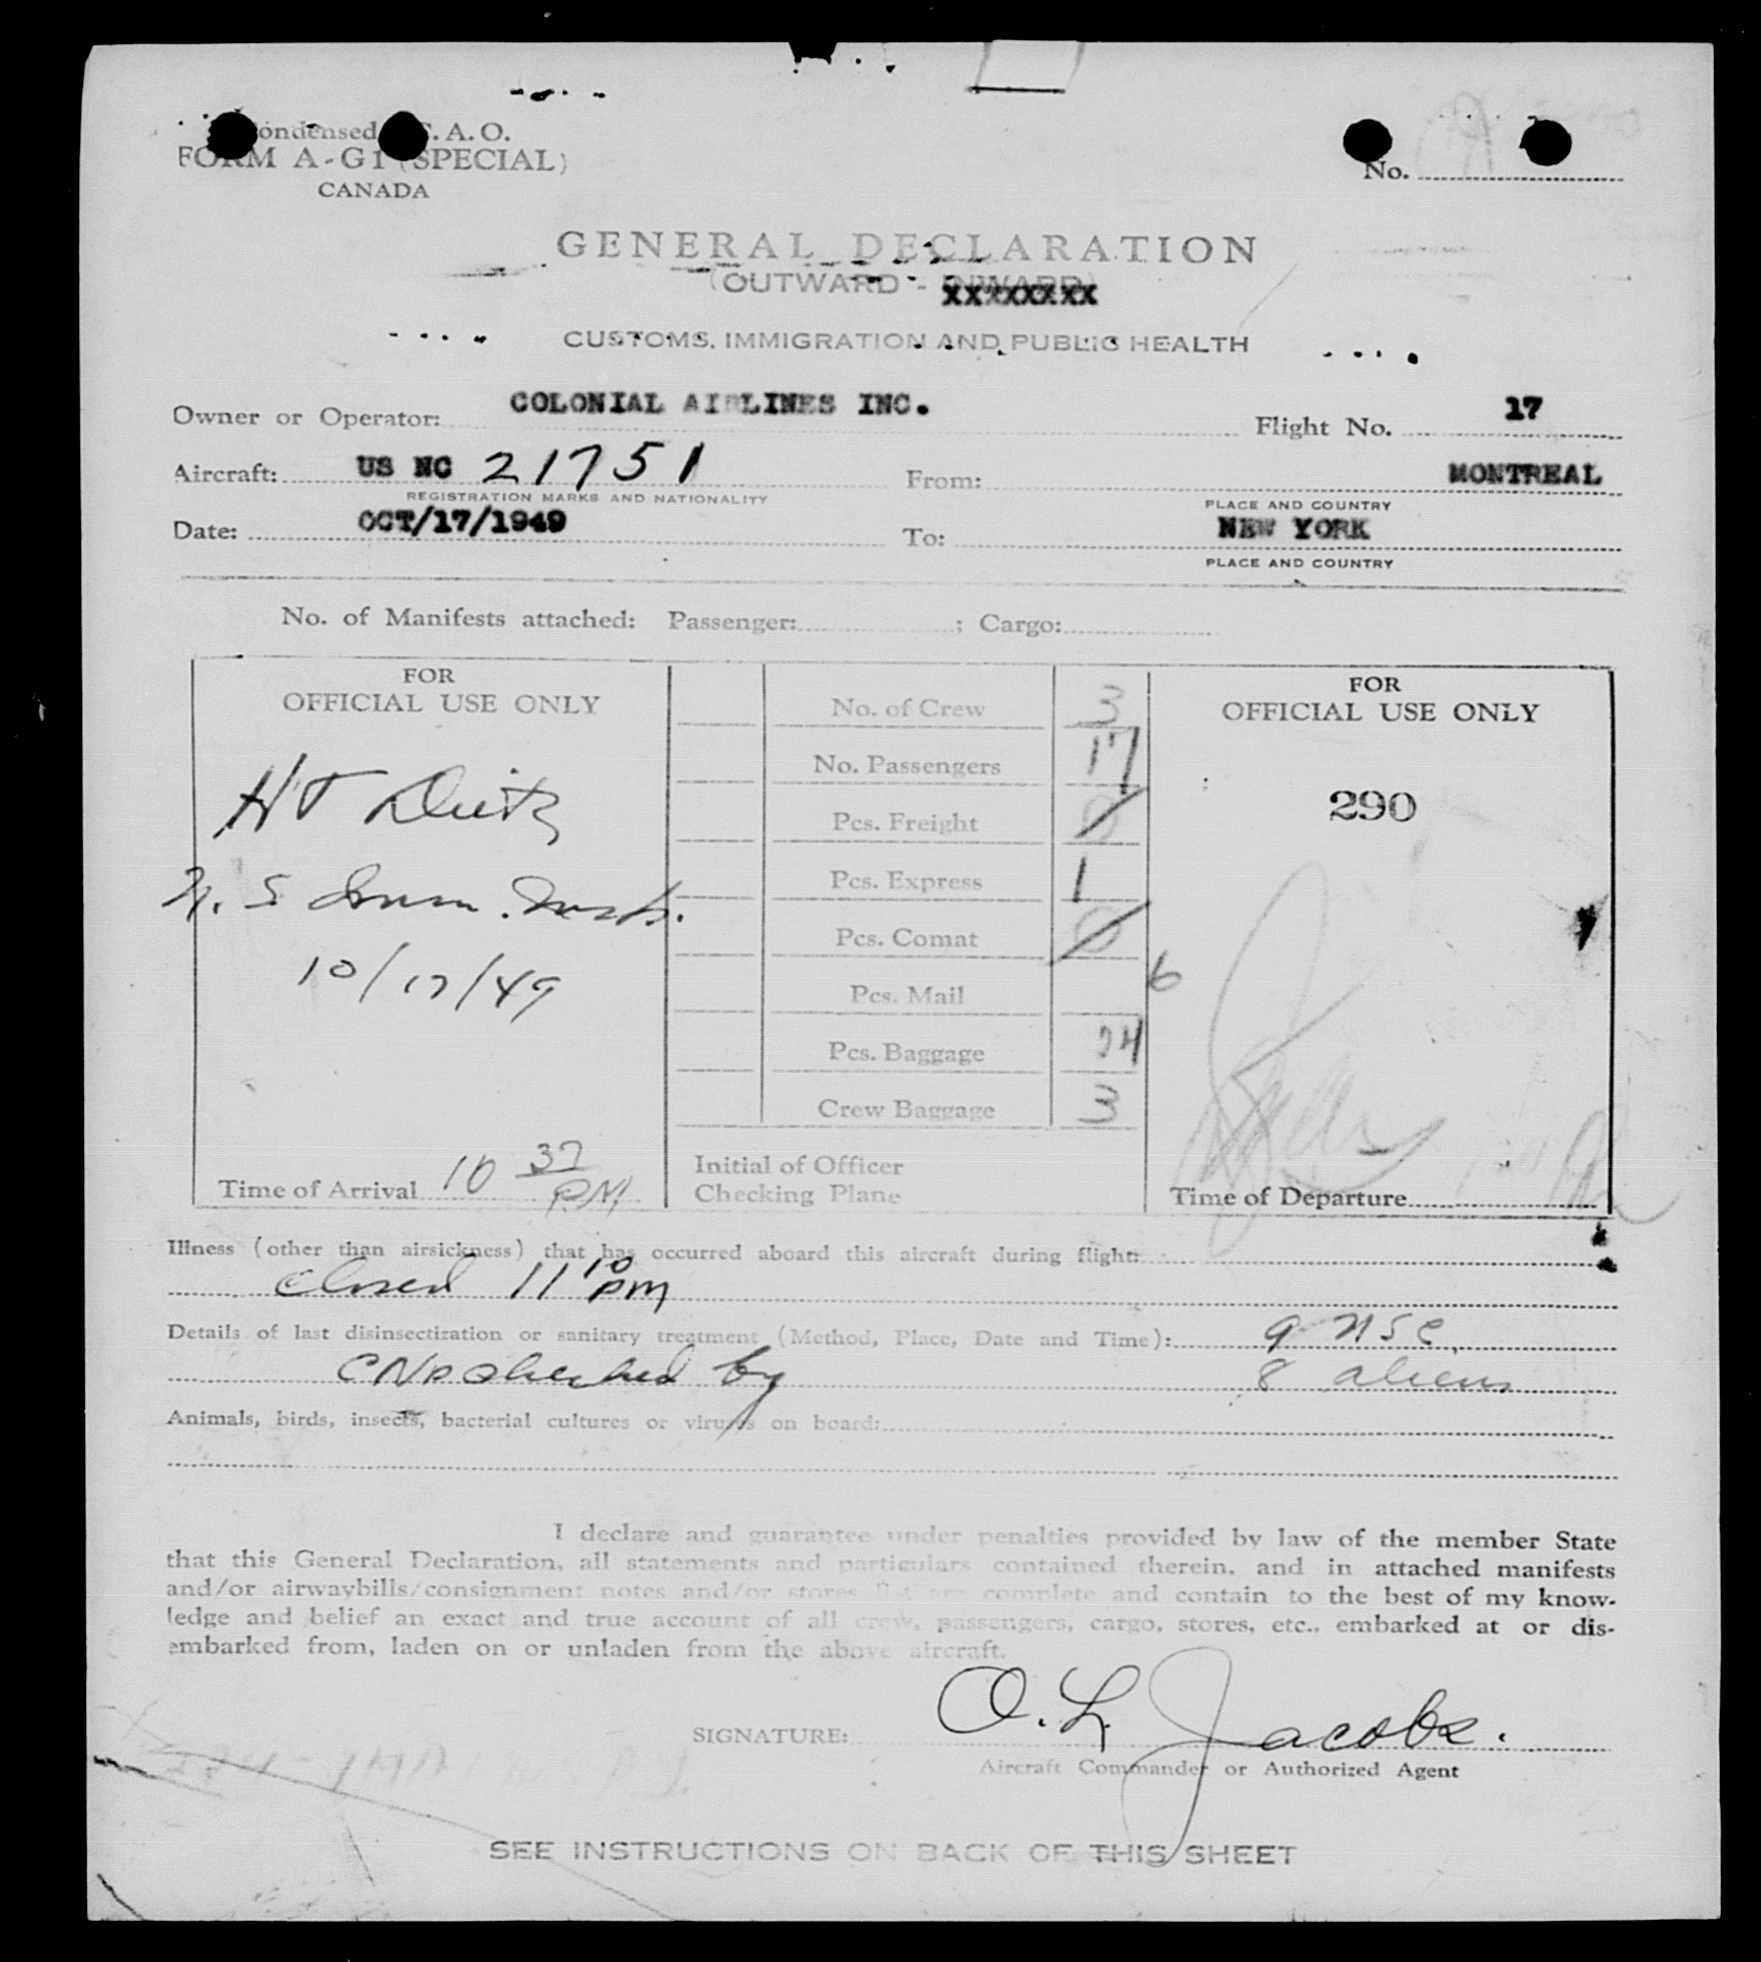 Condensed I.C.A.O.
FORM A-G1 (SPECIAL)
CANADA
No.
GENERAL DECLARATION
(OUTWARD - INWARD)
XXXXXXXX
CUSTOMS, IMMIGRATION AND PUBLIC HEALTH
Owner or Operator: COLONIAL AIRLINES INC.
Flight No. 17
Aircraft: US NC 21751
From: MONTREAL
REGISTRATION MARKS AND NATIONALITY
PLACE AND COUNTRY
Date: OCT/17/1949
To: NEW YORK
PLACE AND COUNTRY
No. of Manifests attached: Passenger: ; Cargo:
FOR
OFFICIAL USE ONLY
HJ Dietz
10/17/49
Time of Arrival 10 37 PM
No. of Crew 3
No. Passengers 17
Pcs. Freight 0
Pcs. Express 1
Pcs. Comat 0
Pcs. Mail 6
Pcs. Baggage 24
Crew Baggage 3
Initial of Officer
Checking Plane
FOR
OFFICIAL USE ONLY
290
Time of Departure
Illness (other than airsickness) that has occurred aboard this aircraft during flight:
Closed 11 10 PM
Details of last disinsectization or sanitary treatment (Method, Place, Date and Time): 9 USC
checked by 8 aliens
Animals, birds, insects, bacterial cultures or viruses on board:
I declare and guarantee under penalties provided by law of the member State
that this General Declaration, all statements and particulars contained therein, and in attached manifests
and/or airwaybills/consignment notes and/or stores list are complete and contain to the best of my know-
ledge and belief an exact and true account of all crew, passengers, cargo, stores, etc., embarked at or dis-
embarked from, laden on or unladen from the above aircraft.
SIGNATURE: O. L. Jacobs.
Aircraft Commander or Authorized Agent
SEE INSTRUCTIONS ON BACK OF THIS SHEET